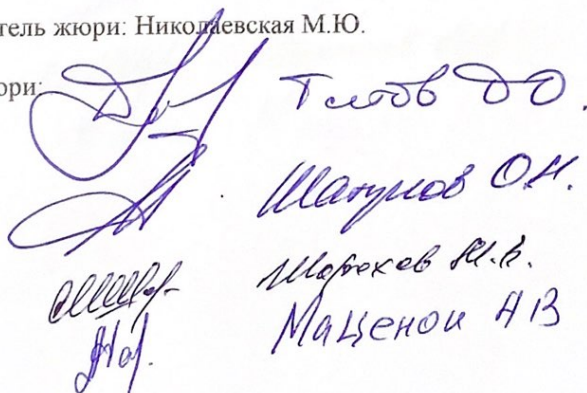 тель жюри: Николаевская М.Ю.
ори:
Титов ДО.
Шатунов О.Н.
Шорохов М.В.
Маценои АВ